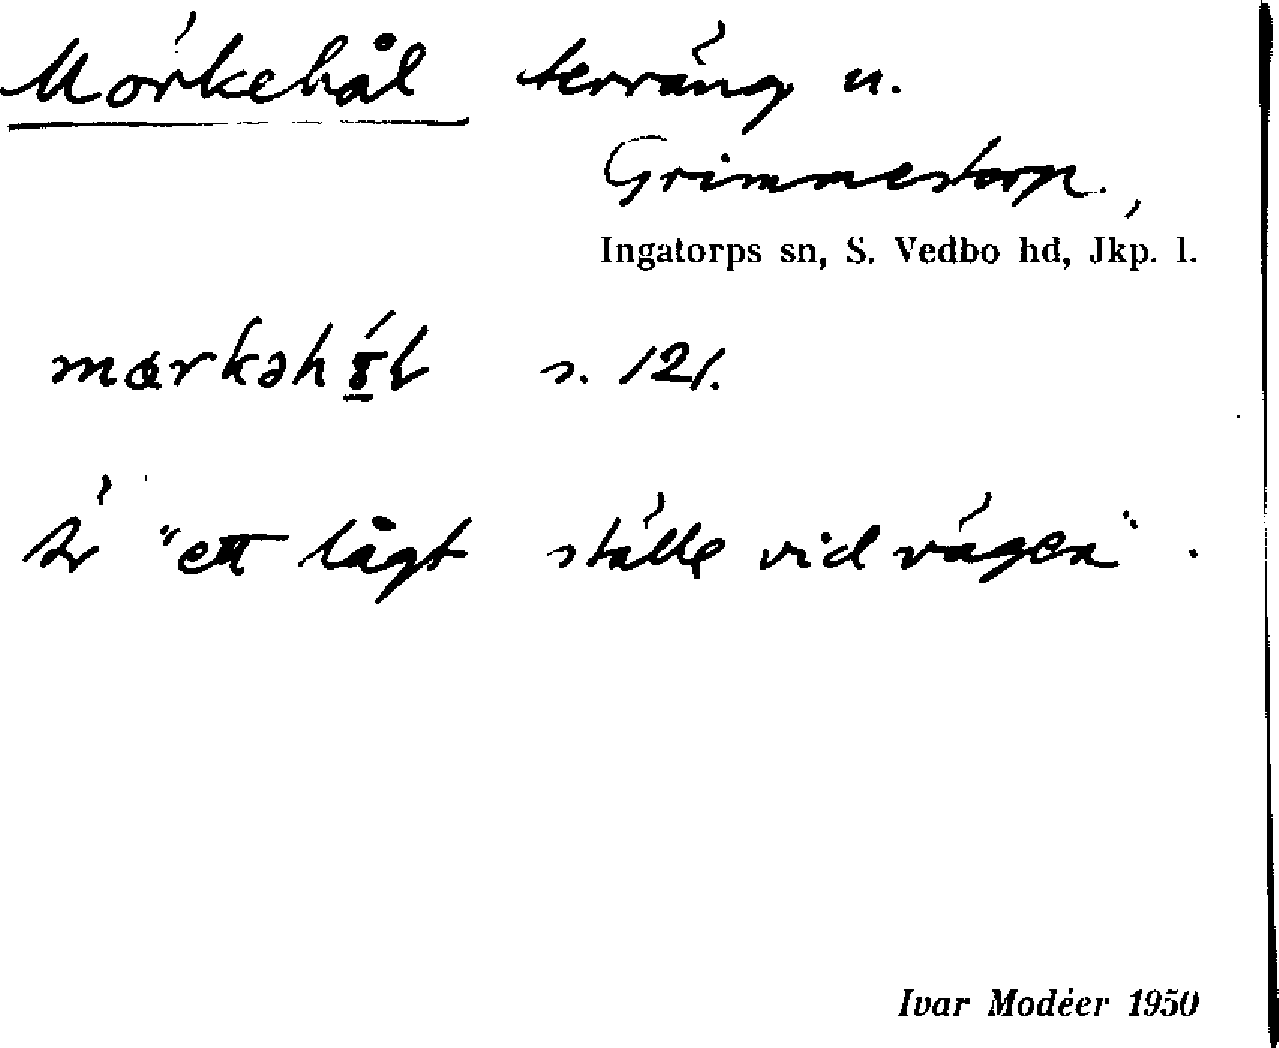 Mörkehål terräng u.
Grimmestorp.,
Ingatorps sn, S. Vedbo hd, Jkp. l.
s. 121.
Är "ett lågt ställe vid vägen".
Ivar Modéer 1950